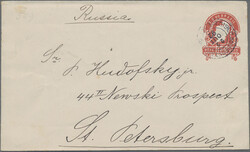 Russia.
Sr.
P. Hudofsky jr.
44 II Newski Prospect
St. Petersburg.